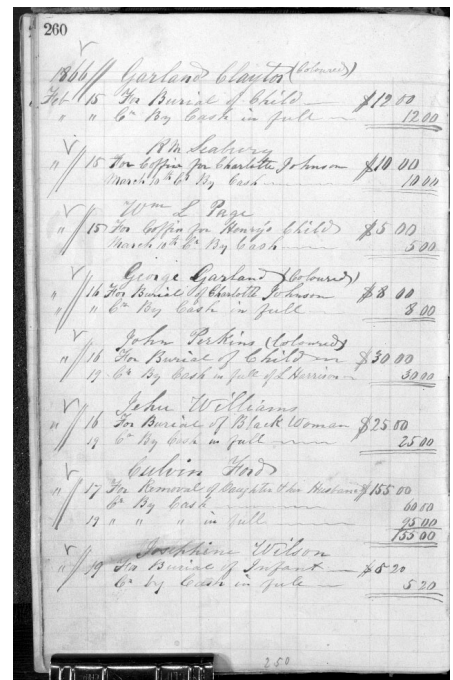 260
1866 Garland Clayton (Coloured)
Feb 15 For Burial of Child $12 00
" " Cr By Cash in full 12 00
R M Seabury
" 15 For Coffin for Charlotte Johnson $10 00
March 10th Cr By Cash 10 00
Wm L Page
" 15 For Coffin for Henry's Child $5 00
March 10th Cr By Cash 5 00
George Garland (Coloured)
" 16 For Burial of Charlotte Johnson $8 00
" " Cr By Cash in full 8 00
John Perkins (Coloured)
" 16 For Burial of Child $30 00
19 Cr By Cash in full of L Harrison 30 00
Jehu Williams
" 16 For Burial of Black Woman $25 00
19 Cr By Cash in full 25 00
Culvin Ford
" 17 For Removal of Daughter & her Husband $155 00
Cr By Cash 60 00
19 " " " in full 95 00
155 00
Josephine Wilson
" 19 For Burial of Infant $5 20
Cr by Cash in full 5 20
250